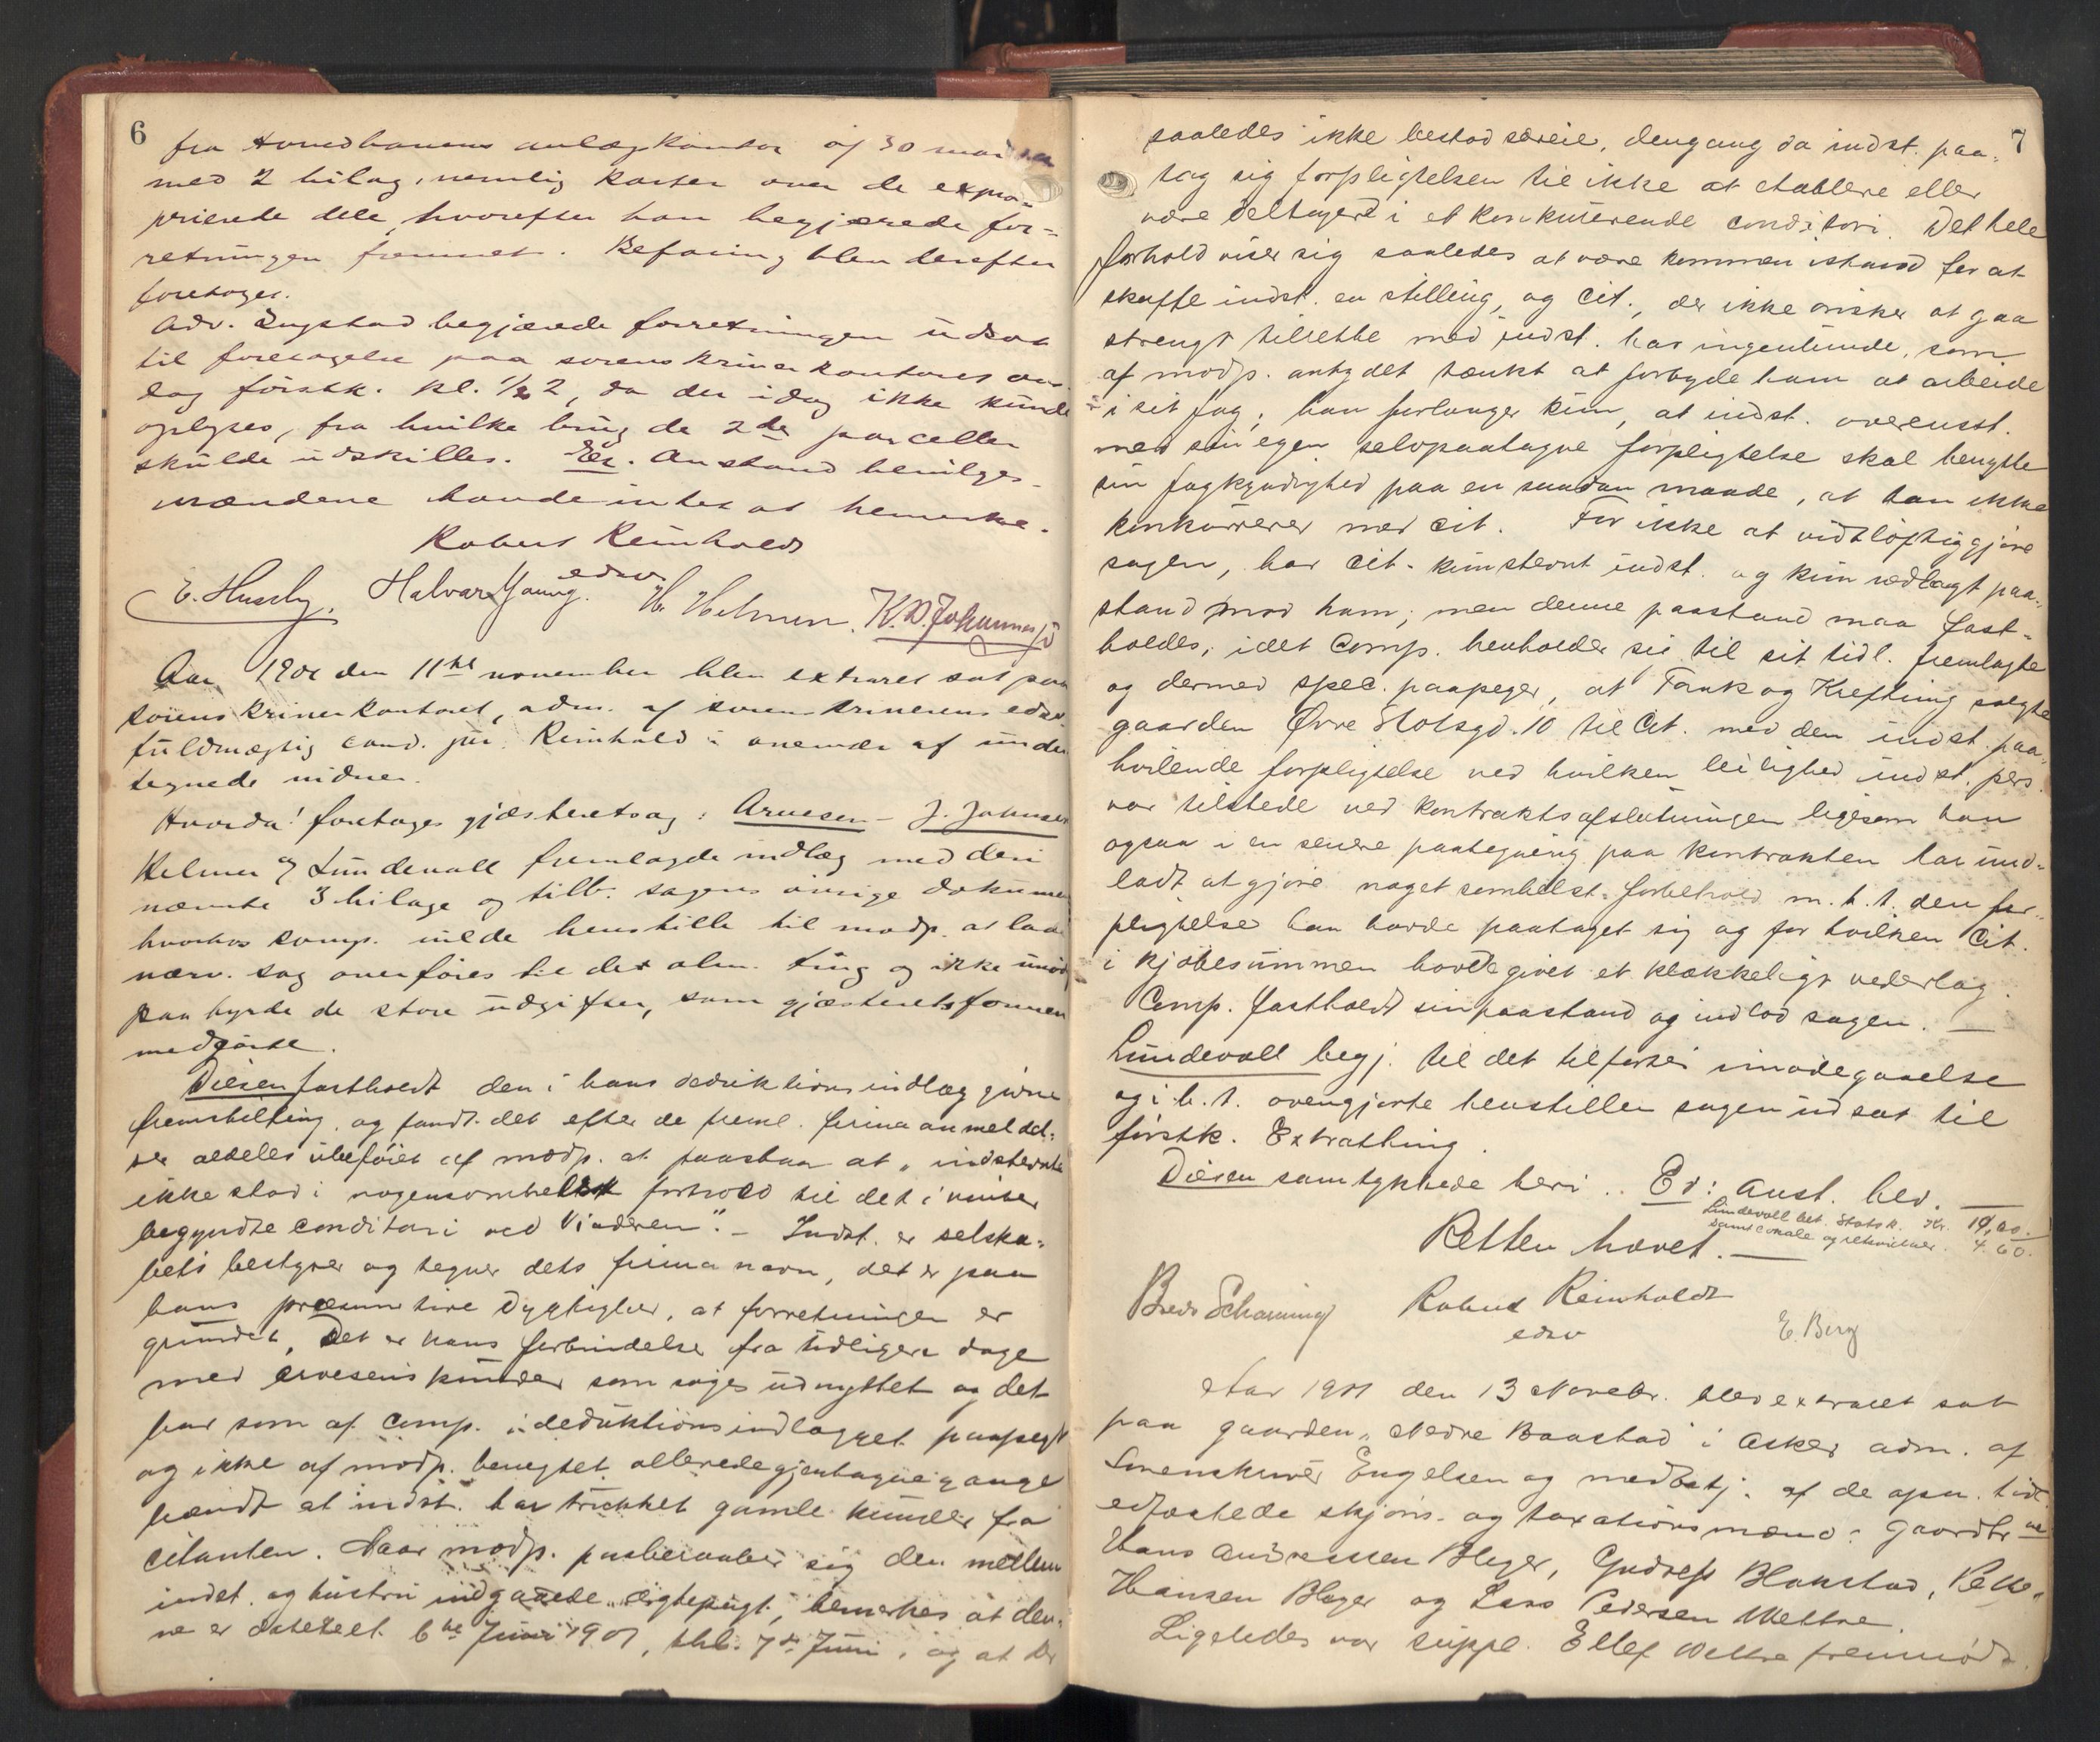 6
fra Hovedbanens anlægskontor af 30 mai
med 2 bilag, nemlig karter over de expro-
prierede dele, hvorefter han begjærede for-
retningen fremmet. Befaring blev derefter
foretaget.
Adv. Sugstad begjærede forretningen udsat
til foretagelse paa sorenskriverkontoret ons-
dag førstk. kl. 1/2 2, da der idag ikke kunde
oplyses, fra hvilke brug de 2de parceller
skulde udskilles. Er. Anstand bevilges.
mændene havde intet at bemerke.
Robert Reinholdt
edsv.
E. Huseby. Halvar Young. H. Helmer. K. D. Johannes
Aar 1901 den 11te november blev extraret sat paa
sorenskriverkontoret, adm. af sorenskriverens edsv.
fuldmægtig cand. jur. Reinholdt i overvær af under
tegnede vidner.
Hvorda! foretoges gjæsteretssag: Arnesen – J. Johnsen
Helmer og Lundevall fremlagde indlæg med deri
nævnte 3 bilage og tilb. sagens øvrige dokumen
hvorhos komp. vilde henstille til modp. at lade
nærv. sag overføres til det alm. ting og ikke unød
paabyrde de store udgifter, som gjæsteretsformen
medførte.
Diesen fastholdt den i hans deduktionsindlæg givne
fremstilling, og fandt det efter de freml. firmaanmeldel-
ser aldeles ubeføiet af modp. at paastaa at "indstevnte
ikke stod i nogensomhelst forhold til det i vinter
begyndte conditori ved Vinderen". – Indst. er selska-
bets bestyrer og tegner dets firmanavn, det er paa
hans præsumtive dygtighed, at forretningen er
grundet, Det er hans forbindelse fra tidligere dage
med Arnesens kunder som søges udnyttet og det
har som af Comp. i deduktionsindlægget paapegt
og ikke af modp. benegtet allerede gjentagne gange
hændt at indst. har trukket gamle kunder fra
citanten. Naar modp. paaberaaber sig den mellem
indst. og hustru indgaaede ægtepagt, bemerkes at den-
ne er dateret 6te Juni 1901, thl. 7de Juni, og at der
7
saaledes ikke bestod særeie, dengang da indst. paa-
tog sig forpligtelsen til ikke at etablere eller
være deltager i et konkurerende conditori. Det hele
forhold viser sig saaledes at være kommen istand for at
skaffe indst. en stilling, og Cit., der ikke ønsker at gaa
strengt tilrette med indst. har ingenlunde, som
af modp. antydet tænkt at forbyde ham at arbeide
i sit fag; han forlanger kun, at indst. overensst.
med sin egen selvpaatagne forpligtelse skal benytte
sin fagkyndighed paa en saadan maade, at han ikke
konkurrerer med Cit. For ikke at vidtløftiggjøre
sagen, har Cit. kun stevnt indst. og kun nedlagt paa-
stand mod ham; men denne paastand maa fast-
holdes, idet Comp. henholder sig til sit tidl. fremlagte
og dermed spec. paapeger, at Fauk og Krefting solgte
gaarden Øvre Slotsgd. 10 til Cit. med den indst. paa-
hvilende forpligtelse ved hvilken leilighed indst. pers.
var tilstede ved kontraktsafslutningen ligesom han
ogsaa i en senere paategning paa kontrakten har und-
ladt at gjøre noget somhelst forbehold m. h. t. den for-
pligtelse han havde paataget sig og for hvilken Cit.
i kjøbesummen havde givet et klækkeligt vederlag.
Comp. fastholdt sin paastand og indlod sagen. –
Lundevall begj. til det tilførtes imødegaaelse
og i h. t. ovengjorte henstillen sagen udsat til
førstk. Extrathing.
Diesen samtykkede heri. Er: Anst. bev. –
Lundevall bet. Statsk. Kr. 19,20.
samt lokale og retsvidner. 4.60.
Retten hævet. –
Brede Schanning Robert Reinholdt E. Berg
edsv
Aar 1901 den 13 Novebr. blev extraret sat
paa gaarden "Nedre Baastad" i Asker adm. af
Sorenskriver Engelsen og medbetj. af de opn. tidl.
edfæstede skjøns- og taxationsmænd: Gaardbr.ne
Hans Andreassen Bleger, Gudref Blakstad, Petter
Hansen Bleger og Lars Pedersen Wettre.
Ligeledes var suppl. Ellef Wettre fremmødt.